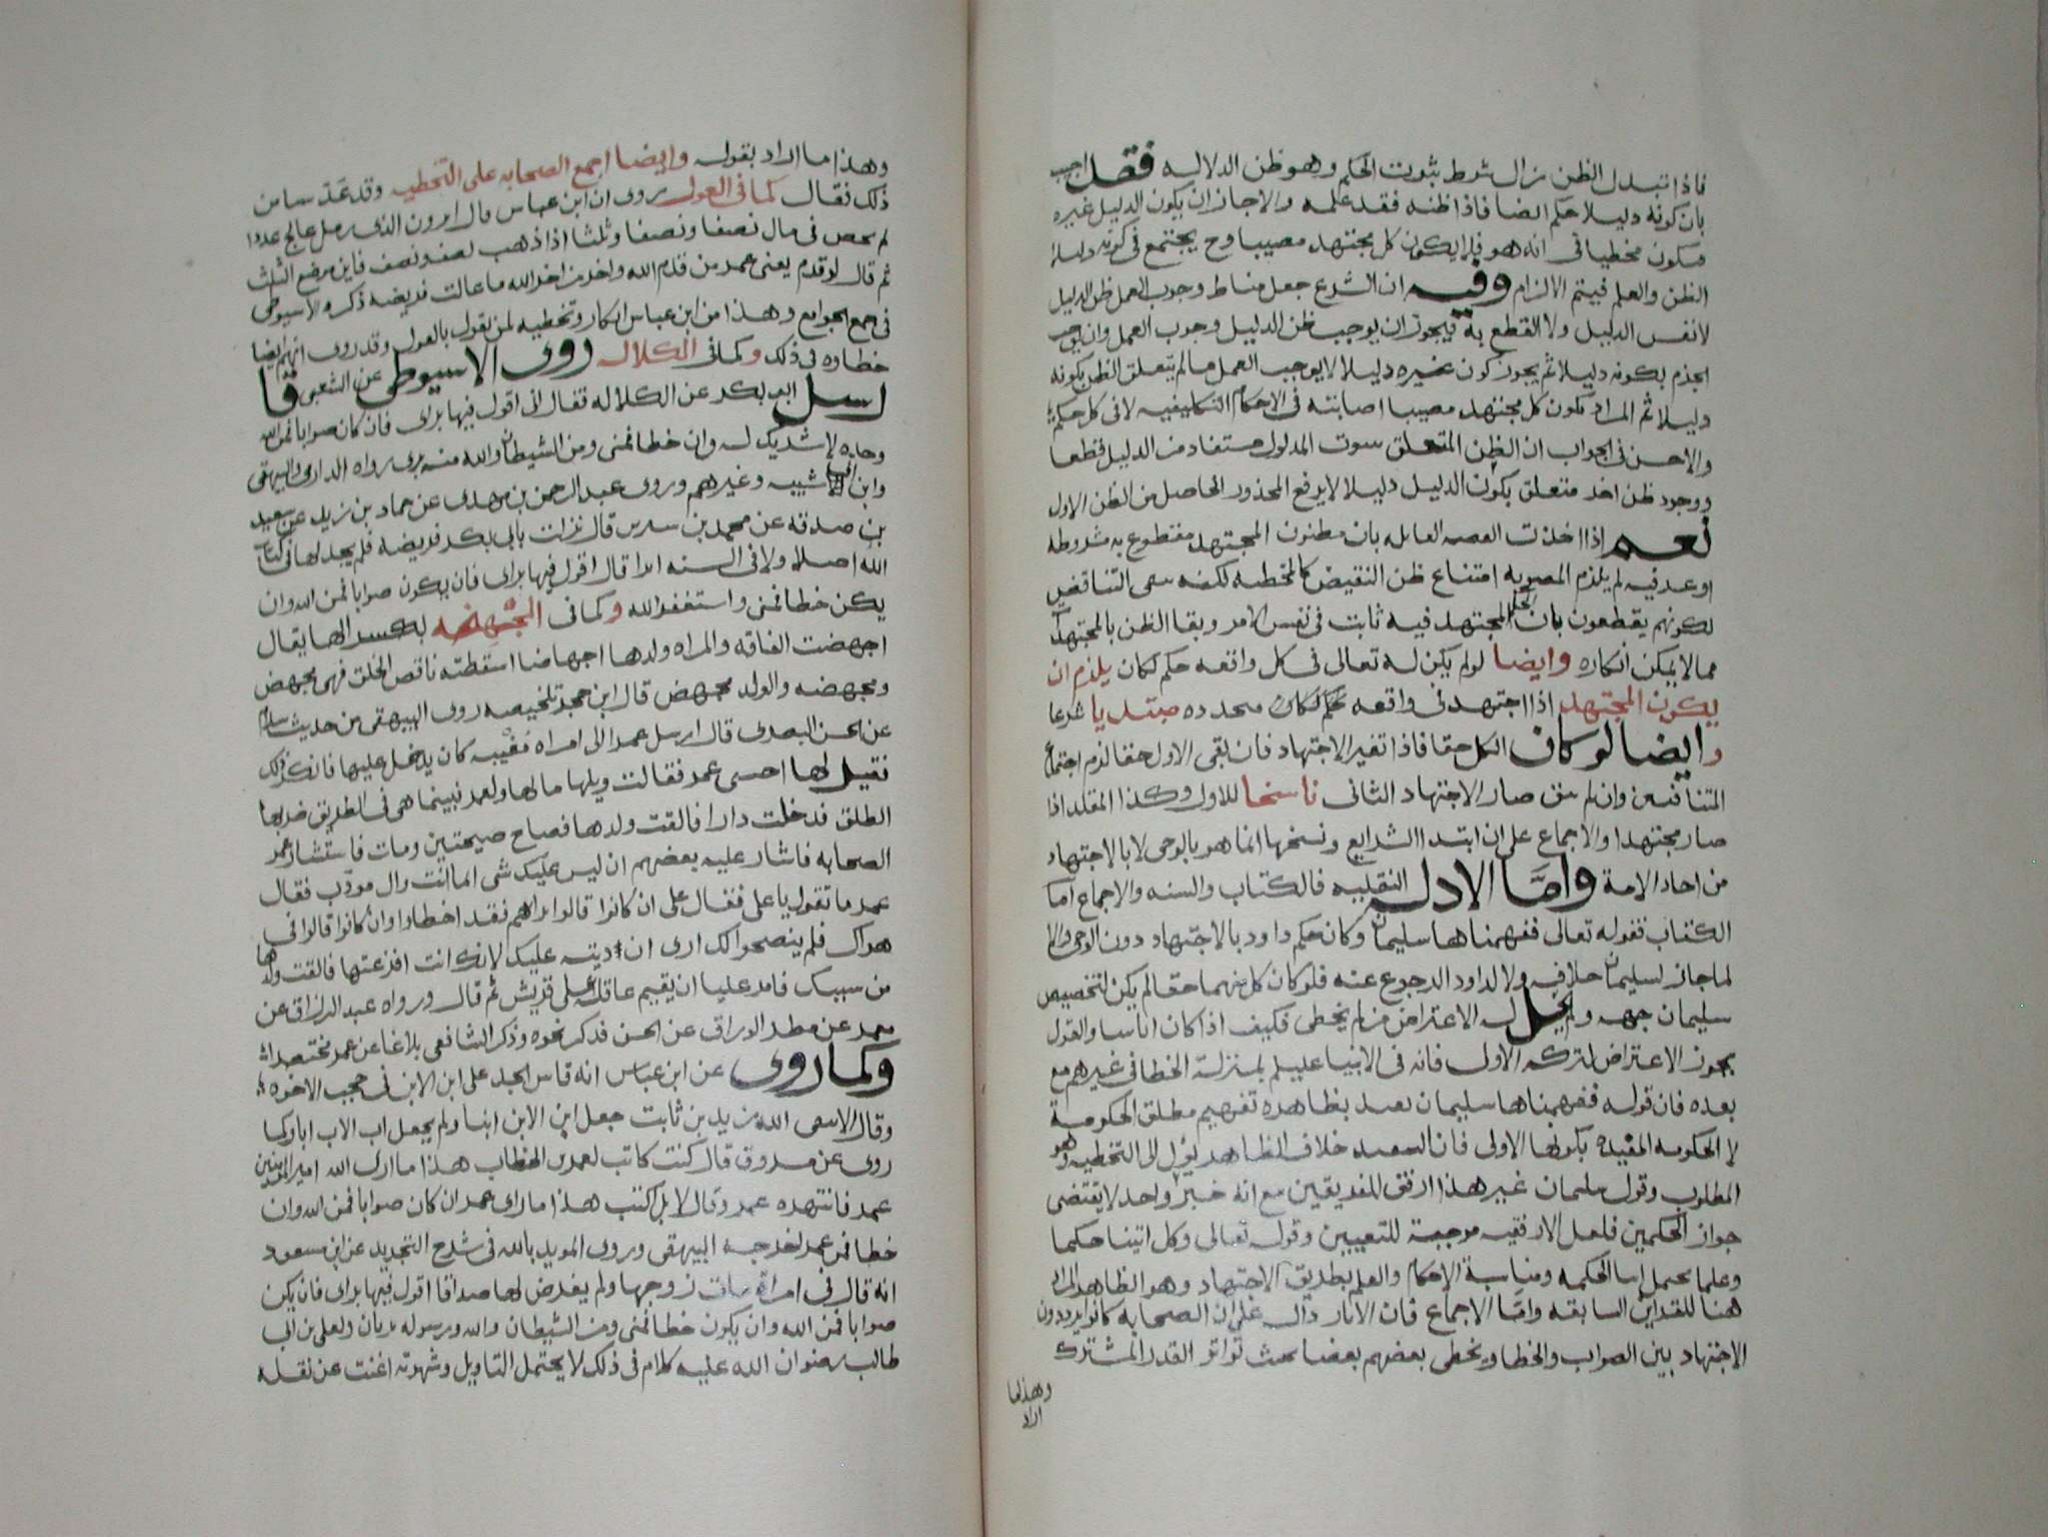 فاذا تبدل الظن زال شرط ثبوت الحكم وهو ظن الدلاله فقد اجيب
بان كونه دليلا حكم ايضا فاذا ظنه فقد علمه والا جاز ان يكون الدليل غيره
فيكون مخطيا في انه هو فلا يكون كل مجتهد مصيبا وح يجتمع في كونه دليلا
الظن والعلم فيتم الالزام وفيه ان الشرع جعل مناط وجوب العمل ظن الدليل
لا نفس الدليل ولا القطع به فيجوز ان يوجب ظن الدليل وجوب العمل وان يوجب
الجزم بكونه دليلا ثم يجوز كون غيره دليلا لا يوجب العمل ما لم يتعلق الظن بكونه
دليلا ثم المراد بكون كل مجتهد مصيبا اصابته في الاحكام التكليفيه لا في كل حكم
والاحسن في الجواب ان الظن المتعلق بثبوت المدلول مستفاد من الدليل قطعا
ووجود ظن اخر متعلق بكون الدليل دليلا لا يرفع المحذور الحاصل من الظن الاول
نعم اذا اخذت القضيه القايله بان مظنون المجتهد مقطوع به مشروطه
او عرفيه لم يلزم المصوبه امتناع ظن النقيض كالمخطيه لكنه يبقى التناقض
لكونهم يقطعون بان الحكم المجتهد فيه ثابت في نفس الامر وبقا الظن بالمجتهد
مما لا يمكن انكاره وايضا لو لم يكن له تعالى في كل واقعه حكم لكان يلزم ان
يكون المجتهد اذا اجتهد في واقعه بحكم لكان مجدده مبتديا شرعا
وايضا لو كان الكل حقا فاذا تغير الاجتهاد فان بقي الاول حقا لزم اجتماع
المتنافيين وان لم يبق صار الاجتهاد الثاني ناسخا للاول وكذا المقلد اذا
صار مجتهدا والاجماع على ان ابتدا الشرايع ونسخها انما هو بالوحي لا بالاجتهاد
من احاد الامة واما الادلـه النقليه فالكتاب والسنه والاجماع اما
الكتاب فقوله تعالى ففهمناها سليمان وكان حكم داود بالاجتهاد دون الوحي والا
لما جاز لسليمان خلافه ولا لداود الرجوع عنه فلو كان كل منهما حقا لم يكن لتخصيص
سليمان جهه ولم يحل له الاعتراض من لم يخطي فكيف اذا كان اناسا والقول
بجوز الاعتراض لتركه الاولى فانه في الانبيا عليهم بمنزلة الخطا في غيرهم مع
بعده فان قوله ففهمناها سليمان يفيد بظاهره تفهيم مطلق الحكومة
لا الحكومه المقيده بكونها الاولى فان التقييد خلاف الظاهر يؤل الى التخطيه وهو
المطلوب وقول سليمان غير هذا ارفق للفريقين مع انه خبر واحد لا يقتضي
جواز الحكمين فلعل الارفقيه موجبة للتعيين وقوله تعالى وكل اتينا حكما
وعلما يحتمل ايتا الحكمه ومناسبة الاحكام والعلم بطريق الاجتهاد وهو الظاهر المراد
هنا للقراين السابقه واما الاجماع فان الاثار دال على ان الصحابه كانوا يرددون
الاجتهاد بين الصواب والخطا ويخطي بعضهم بعضا بحيث تواتر القدر المشترك
وهذا ما
اراد
وهذا ما اراد بقوله وايضا اجمع الصحابه على التخطيه وقد عد سا من
ذلك فقال كما في العول روى ان ابن عباس قال اترون الذي رمل عالج عددا
لم يحص في مال نصفا ونصفا وثلثا اذا ذهب نصف ونصف فاين موضع الثلث
ثم قال لو قدم يعني عمر من قدم الله واخر من اخر الله ما عالت فريضه ذكره الاسيوطي
في جمع الجوامع وهذا من ابن عباس انكار وتخطيه لمن يقول بالعول وقد روى انهم ايضا
خطاوه في ذلك وكما في الكلاله روى الاسيوطي عن الشعبي قا
ل سئل ابو بكر عن الكلاله فقال اني اقول فيها براي فان كان صوابا فمن الله
وحده لا شريك له وان خطا فمني ومن الشيطان والله منه بري رواه الدارمي والبيهقي
وابن ابي شيبه وغيرهم وروى عبد الرحمن بن مهدي عن حماد بن زيد عن سعيد
بن صدقه عن محمد بن سيرين قال نزلت بابي بكر فريضه فلم يجد لها في كتاب
الله اصلا ولا في السنه اثرا قال اقول فيها براي فان يكون صوابا فمن الله وان
يكن خطا فمني واستغفر الله وكما في المجهضه بكسر الها يقال
اجهضت الناقه والمراه ولدها اجهاضا اسقطته ناقص الخلق فهي مجهض
ومجهضه والولد مجهض قال ابن حجر تلخيصه روى البيهقي من حديث سلام
عن الحسن البصري قال ارسل عمر الى امراه مغيبه كان يدخل عليها فانكر ذلك
فقيل لها اجيبي عمر فقالت ويلها ما لها ولعمر فبينما هي في الطريق ضربها
الطلق فدخلت دارا فالقت ولدها فصاح صيحتين ومات فاستشار عمر
الصحابه فاشار عليه بعضهم ان ليس عليك شي انما انت وال مودب فقال
عمر ما تقول يا علي فقال علي ان كانوا قالوا برايهم فقد اخطاوا وان كانوا قالوا في
هواك فلم ينصحوا لك ارى ان ديته عليك لانك انت افزعتها فالقت ولدها
من سببك فامر عليا ان يقيم عقله على قريش ثم قال ورواه عبد الرزاق عن
معمر عن مطر الوراق عن الحسن فذكر نحوه وذكر الشافعي بلاغا عن عمر مختصرا
وكما روى عن ابن عباس انه قاس الجد على ابن الابن في حجب الاخوه
وقال الا يتقي الله زيد بن ثابت جعل ابن الابن ابنا ولم يجعل اب الاب ابا وكما
روى عن مسروق قال كنت كاتب لعمر بن الخطاب هذا ما ارى الله امير المومنين
عمر فانتهره عمر وقال لا بل اكتب هذا ما راى عمر ان كان صوابا فمن الله وان
خطا فمن عمر اخرجه البيهقي وروى المويد بالله في شرح التجريد عن ابن مسعود
انه قال في امراة مات زوجها ولم يفرض لها صداقا اقول فيها براي فان يكن
صوابا فمن الله وان يكون خطا فمني ومن الشيطان والله ورسوله بريان ولعلي بن ابي
طالب رضوان الله عليه كلام في ذلك لا يحتمل التاويل وشهرته اغنت عن نقله